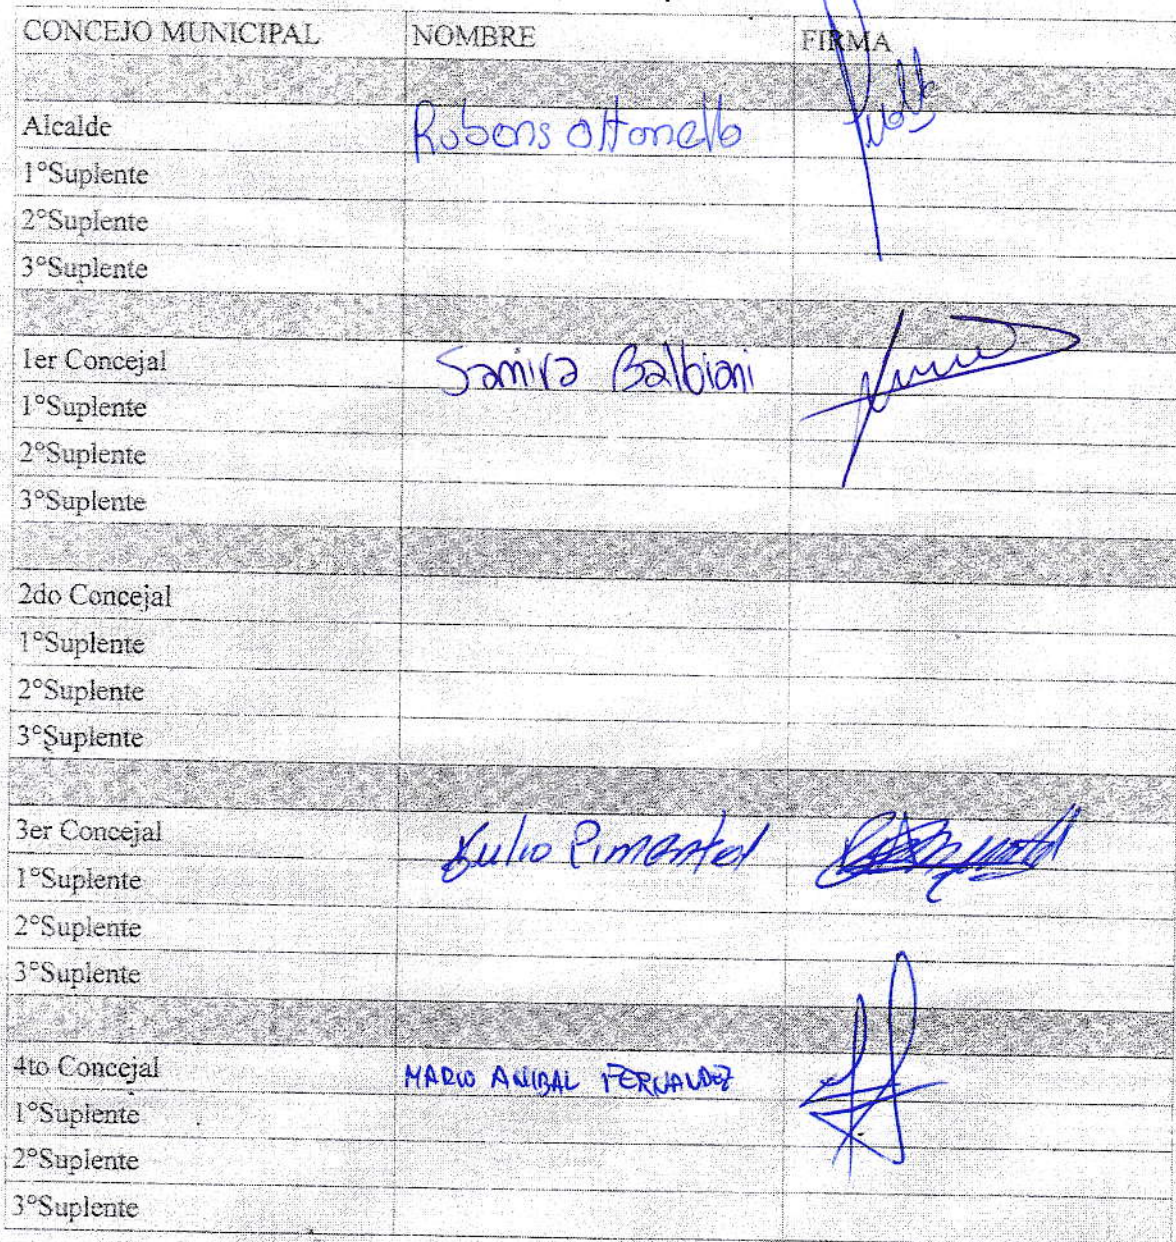 CONCEJO MUNICIPAL NOMBRE FIRMA
Alcalde Rubens Ottonello
1°Suplente
2°Suplente
3°Suplente
1er Concejal Samira Balbiani
1°Suplente
2°Suplente
3°Suplente
2do Concejal
1°Suplente
2°Suplente
3°Suplente
3er Concejal Julio Pimentel
1°Suplente
2°Suplente
3°Suplente
4to Concejal MARIO ANIBAL FERNANDEZ
1°Suplente
2°Suplente
3°Suplente